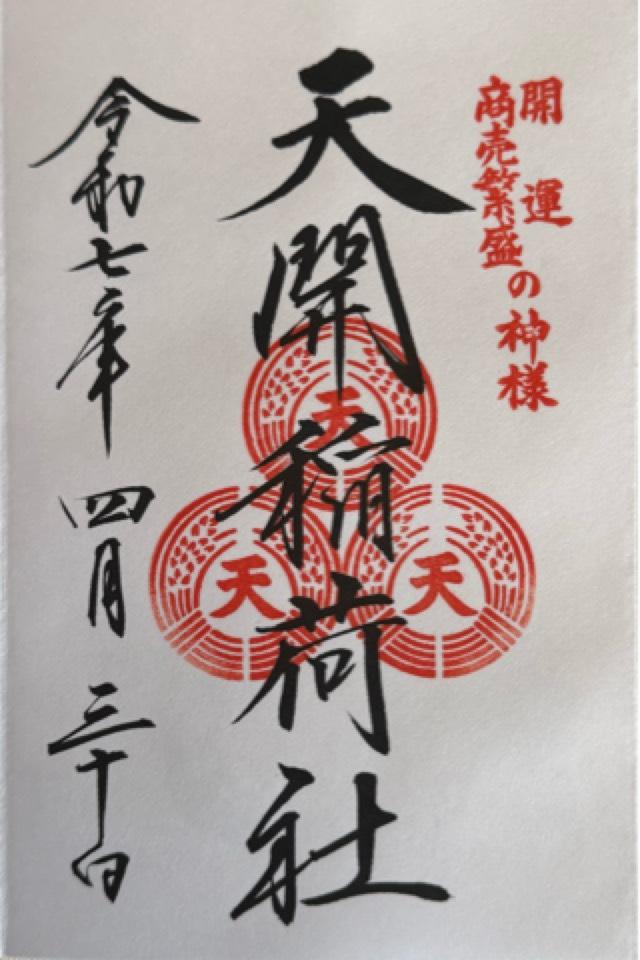 開運
商売繁盛
の神様
天開稲荷社
天
天
天
令和七年 四月 三十日